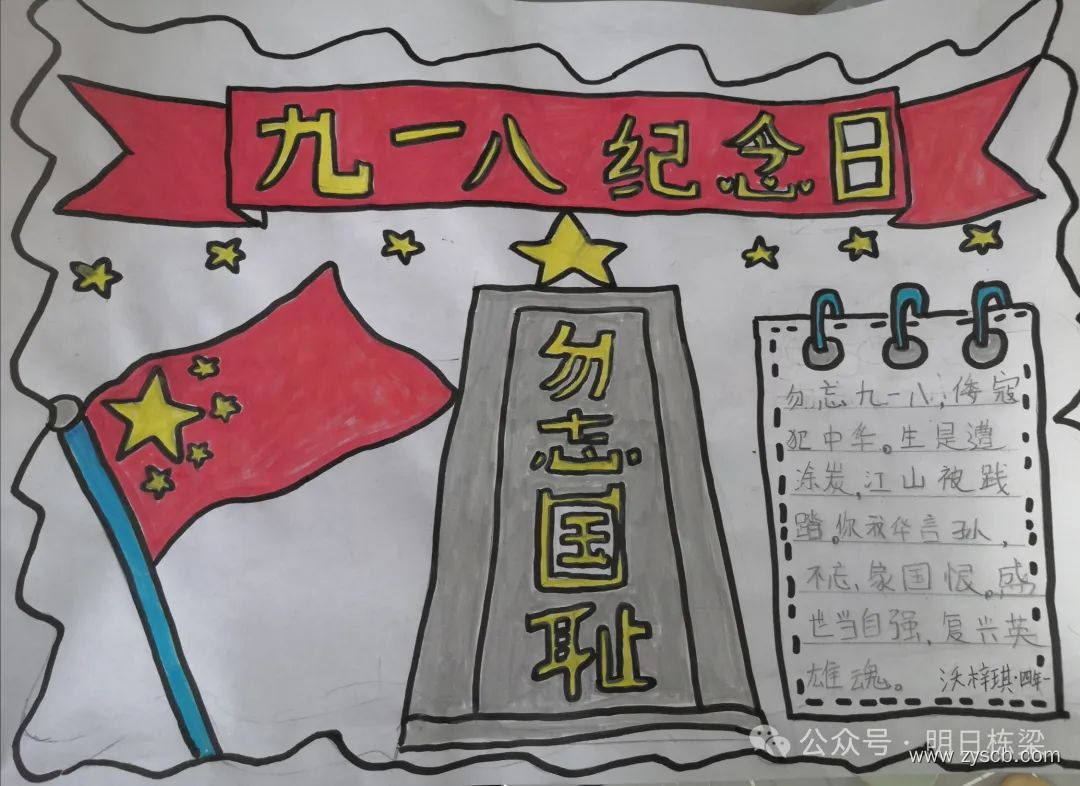 九一八纪念日
勿志国耻
勿忘九一八,倭寇
犯中华。生是遭
涂炭,江山被践
踏。你我华言孙,
不忘,家国恨。感
世当自强,复兴英
雄魂。 沃梓琪·四年一
公众号·明日栋梁
www.zyscb.com